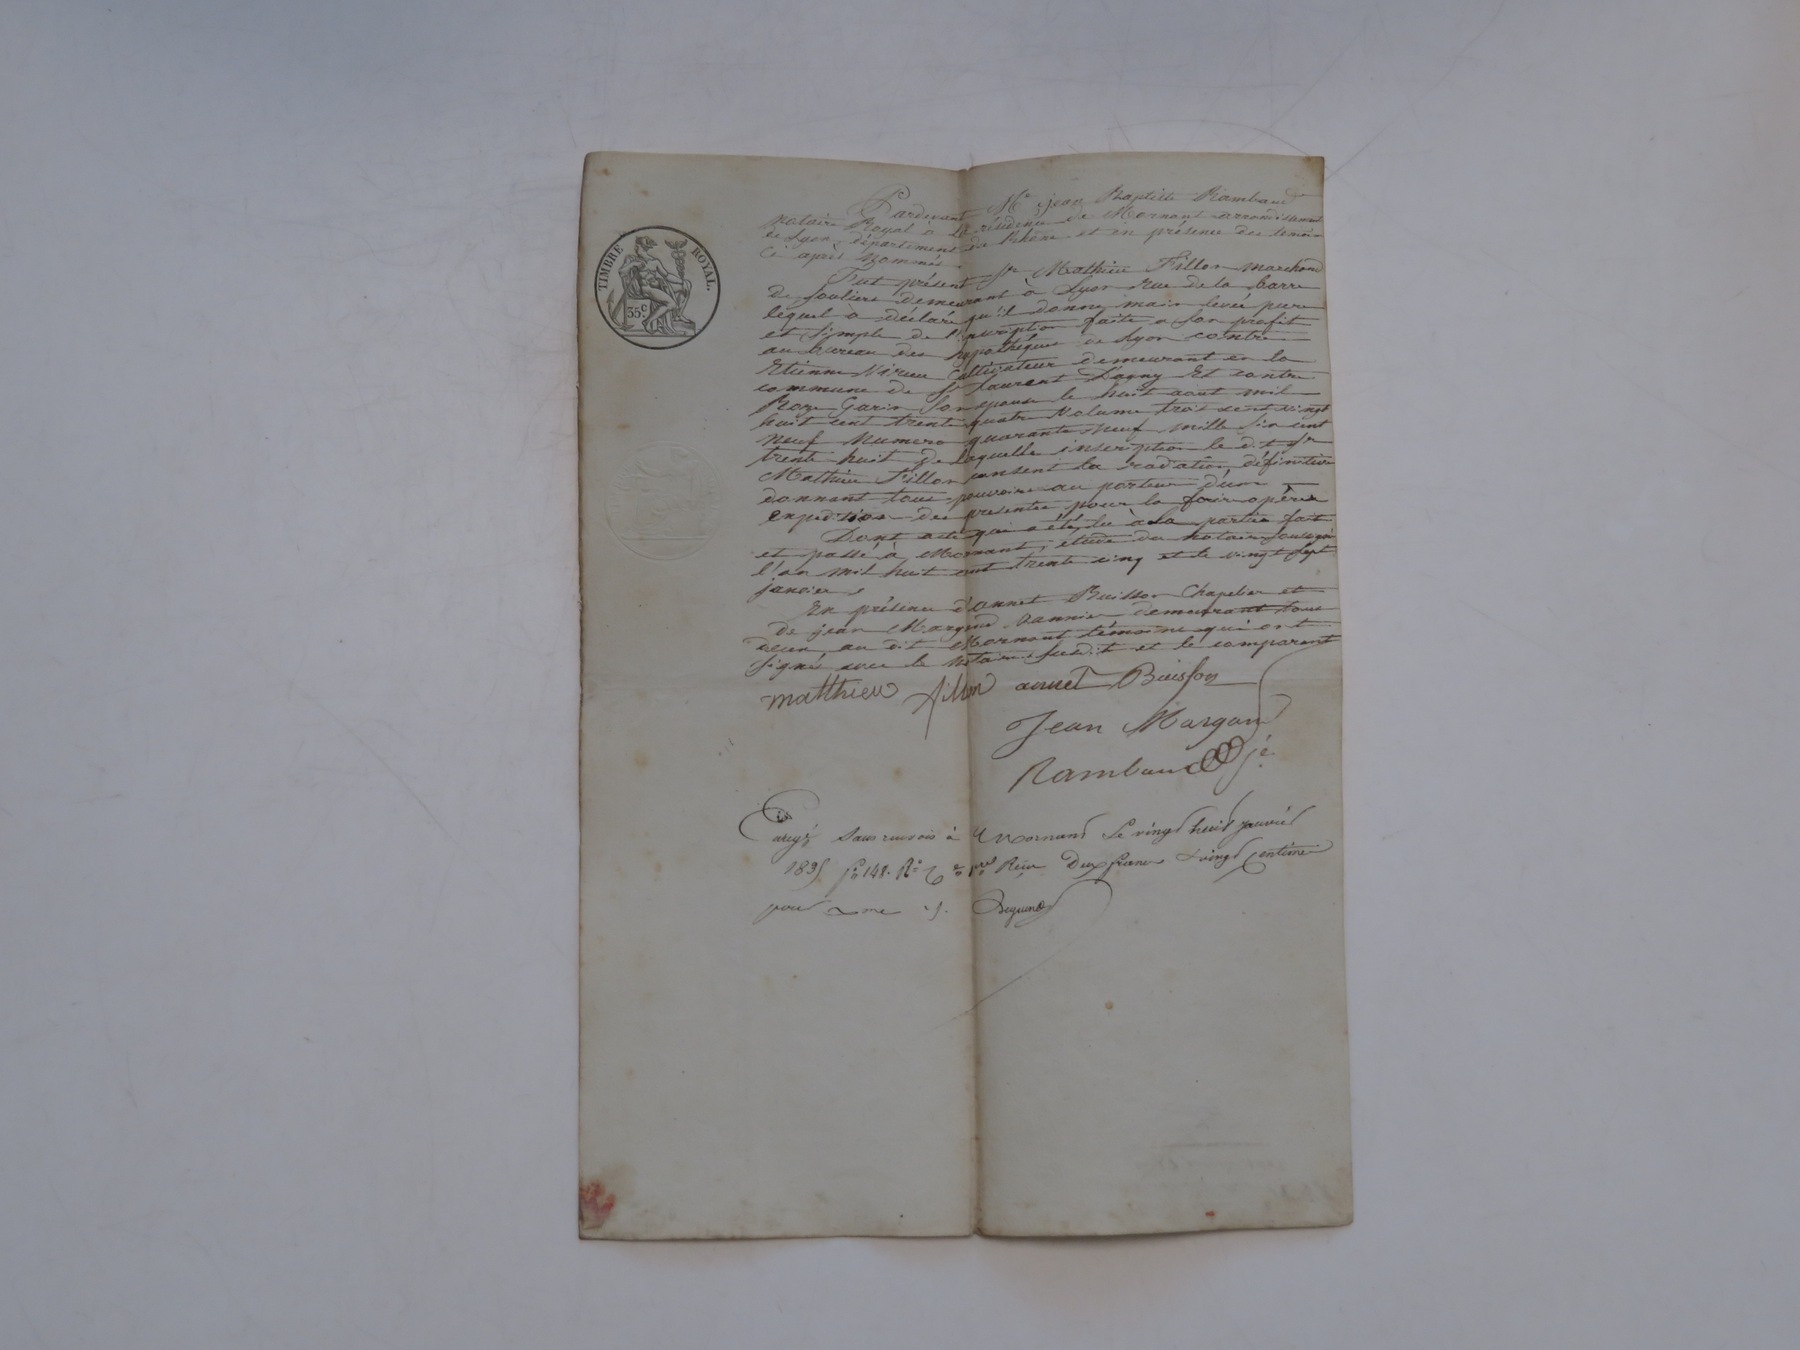 TIMBRE ROYAL.
35 c
Pardevant Me jean Baptiste Rambaud
notaire Royal à la résidence de Mornant arrondissement
de Lyon département du Rhône et en présence des témoins
ci après Nommés.
Fut présent Sr Mathieu Fillon marchand
de souliers demeurant à Lyon rue de la barre
lequel a déclaré qu'il donne main levée pure
et simple de l'inscription faite a son profit
au bureau des hypothéques de Lyon contre
Etienne Virieu Cultivateur demeurant en la
commune de St Laurent D'agny Et contre
Roze Garin Son epouse le huit aout mil
huit cent trente quatre Volume trois cent vingt
neuf Numero quarante Neuf mille six cent
trente huit de laquelle inscription le dit Sr
Mathieu Fillon consent la radiation définitive
donnant tous pouvoirs au porteur d'une
expedition des presentes pour la faire opérer
Dont acte qui a été lu à la partie fait
et passé à Mornant, étude du notaire soussigné
l'an mil huit cent trente cinq et le vingt sept
janvier,
En présence d'annet Buisson Chapelier et
de jean Margand Vannier demeurant tous
deux au dit Mornant témoins qui ont
signé avec le Notaire susdit et le comparant
matthieu fillon annet Buisson
Jean Margand
Rambaud je
Enregé sans renvois à Mornant le vingt huit janvier
1835 fo 148. Ro Reçu Deux francs & vingt centimes
pour